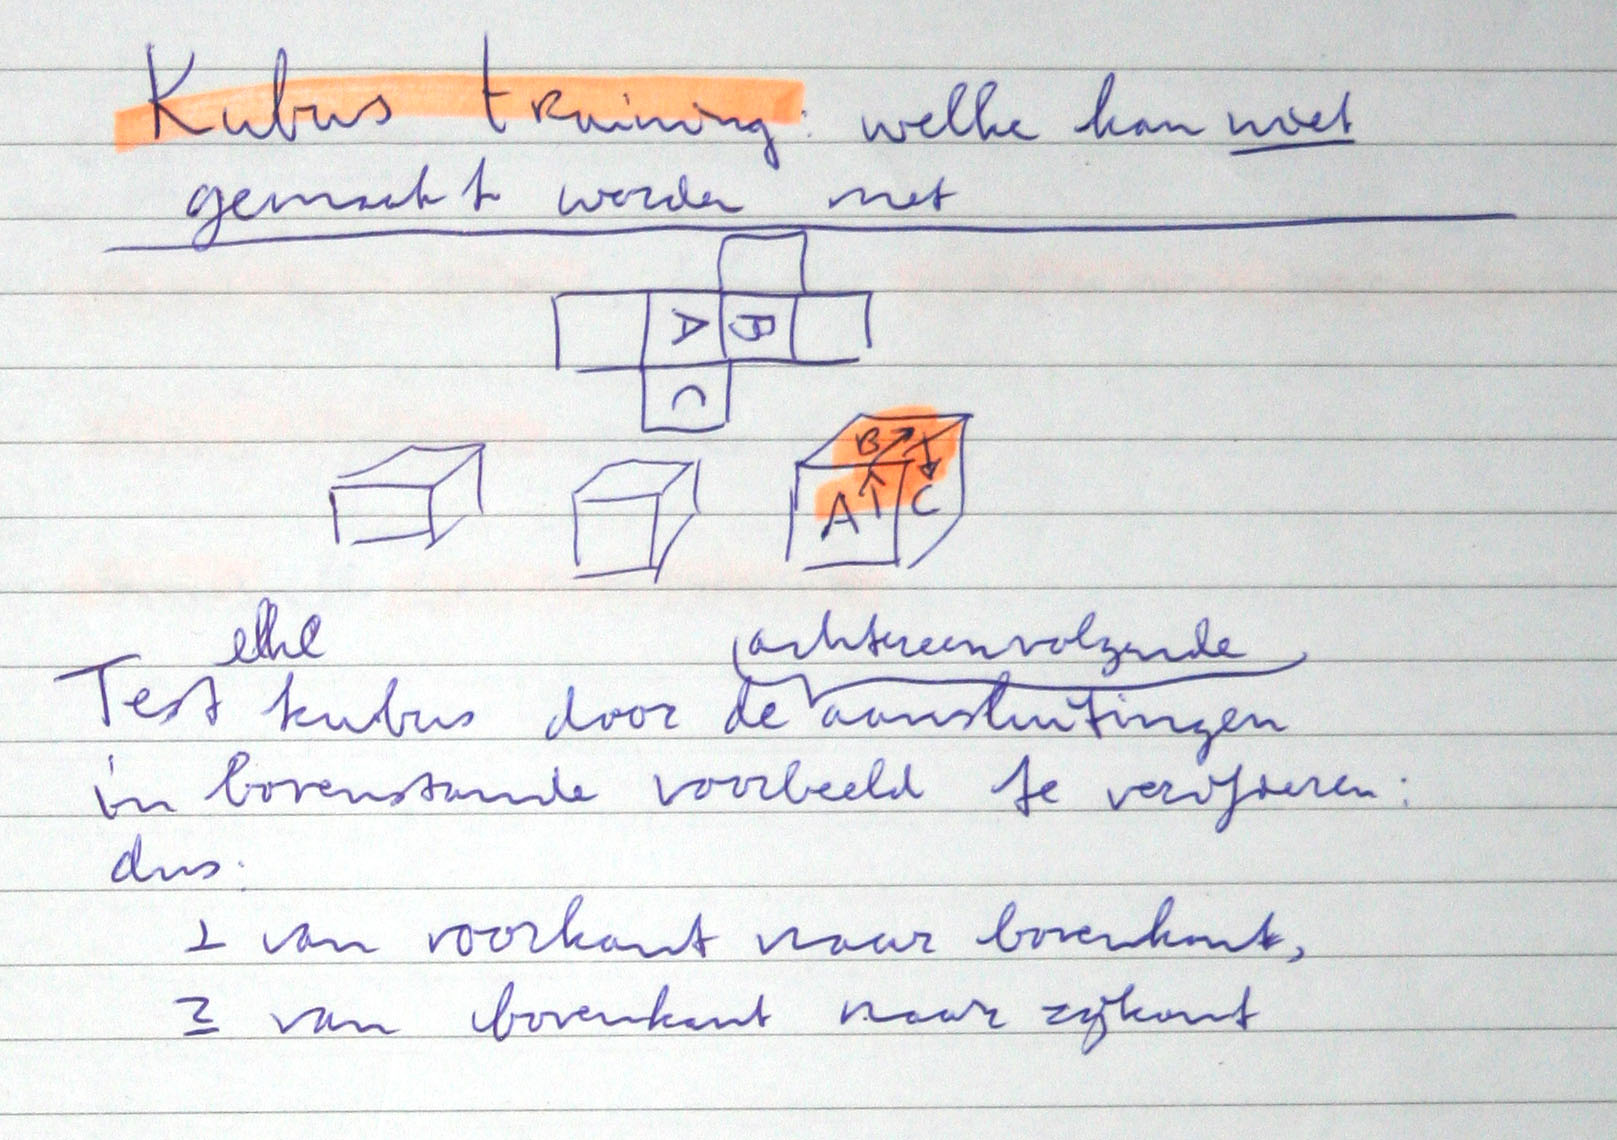 Kubus training: welke kan niet
gemaakt worden met
A B
C
B
A C
elke achtereenvolgende
Test kubus door de aansluitingen
in bovenstande voorbeeld te verifieren:
dus:
1 van voorkant naar bovenkant,
2 van bovenkant naar zijkant